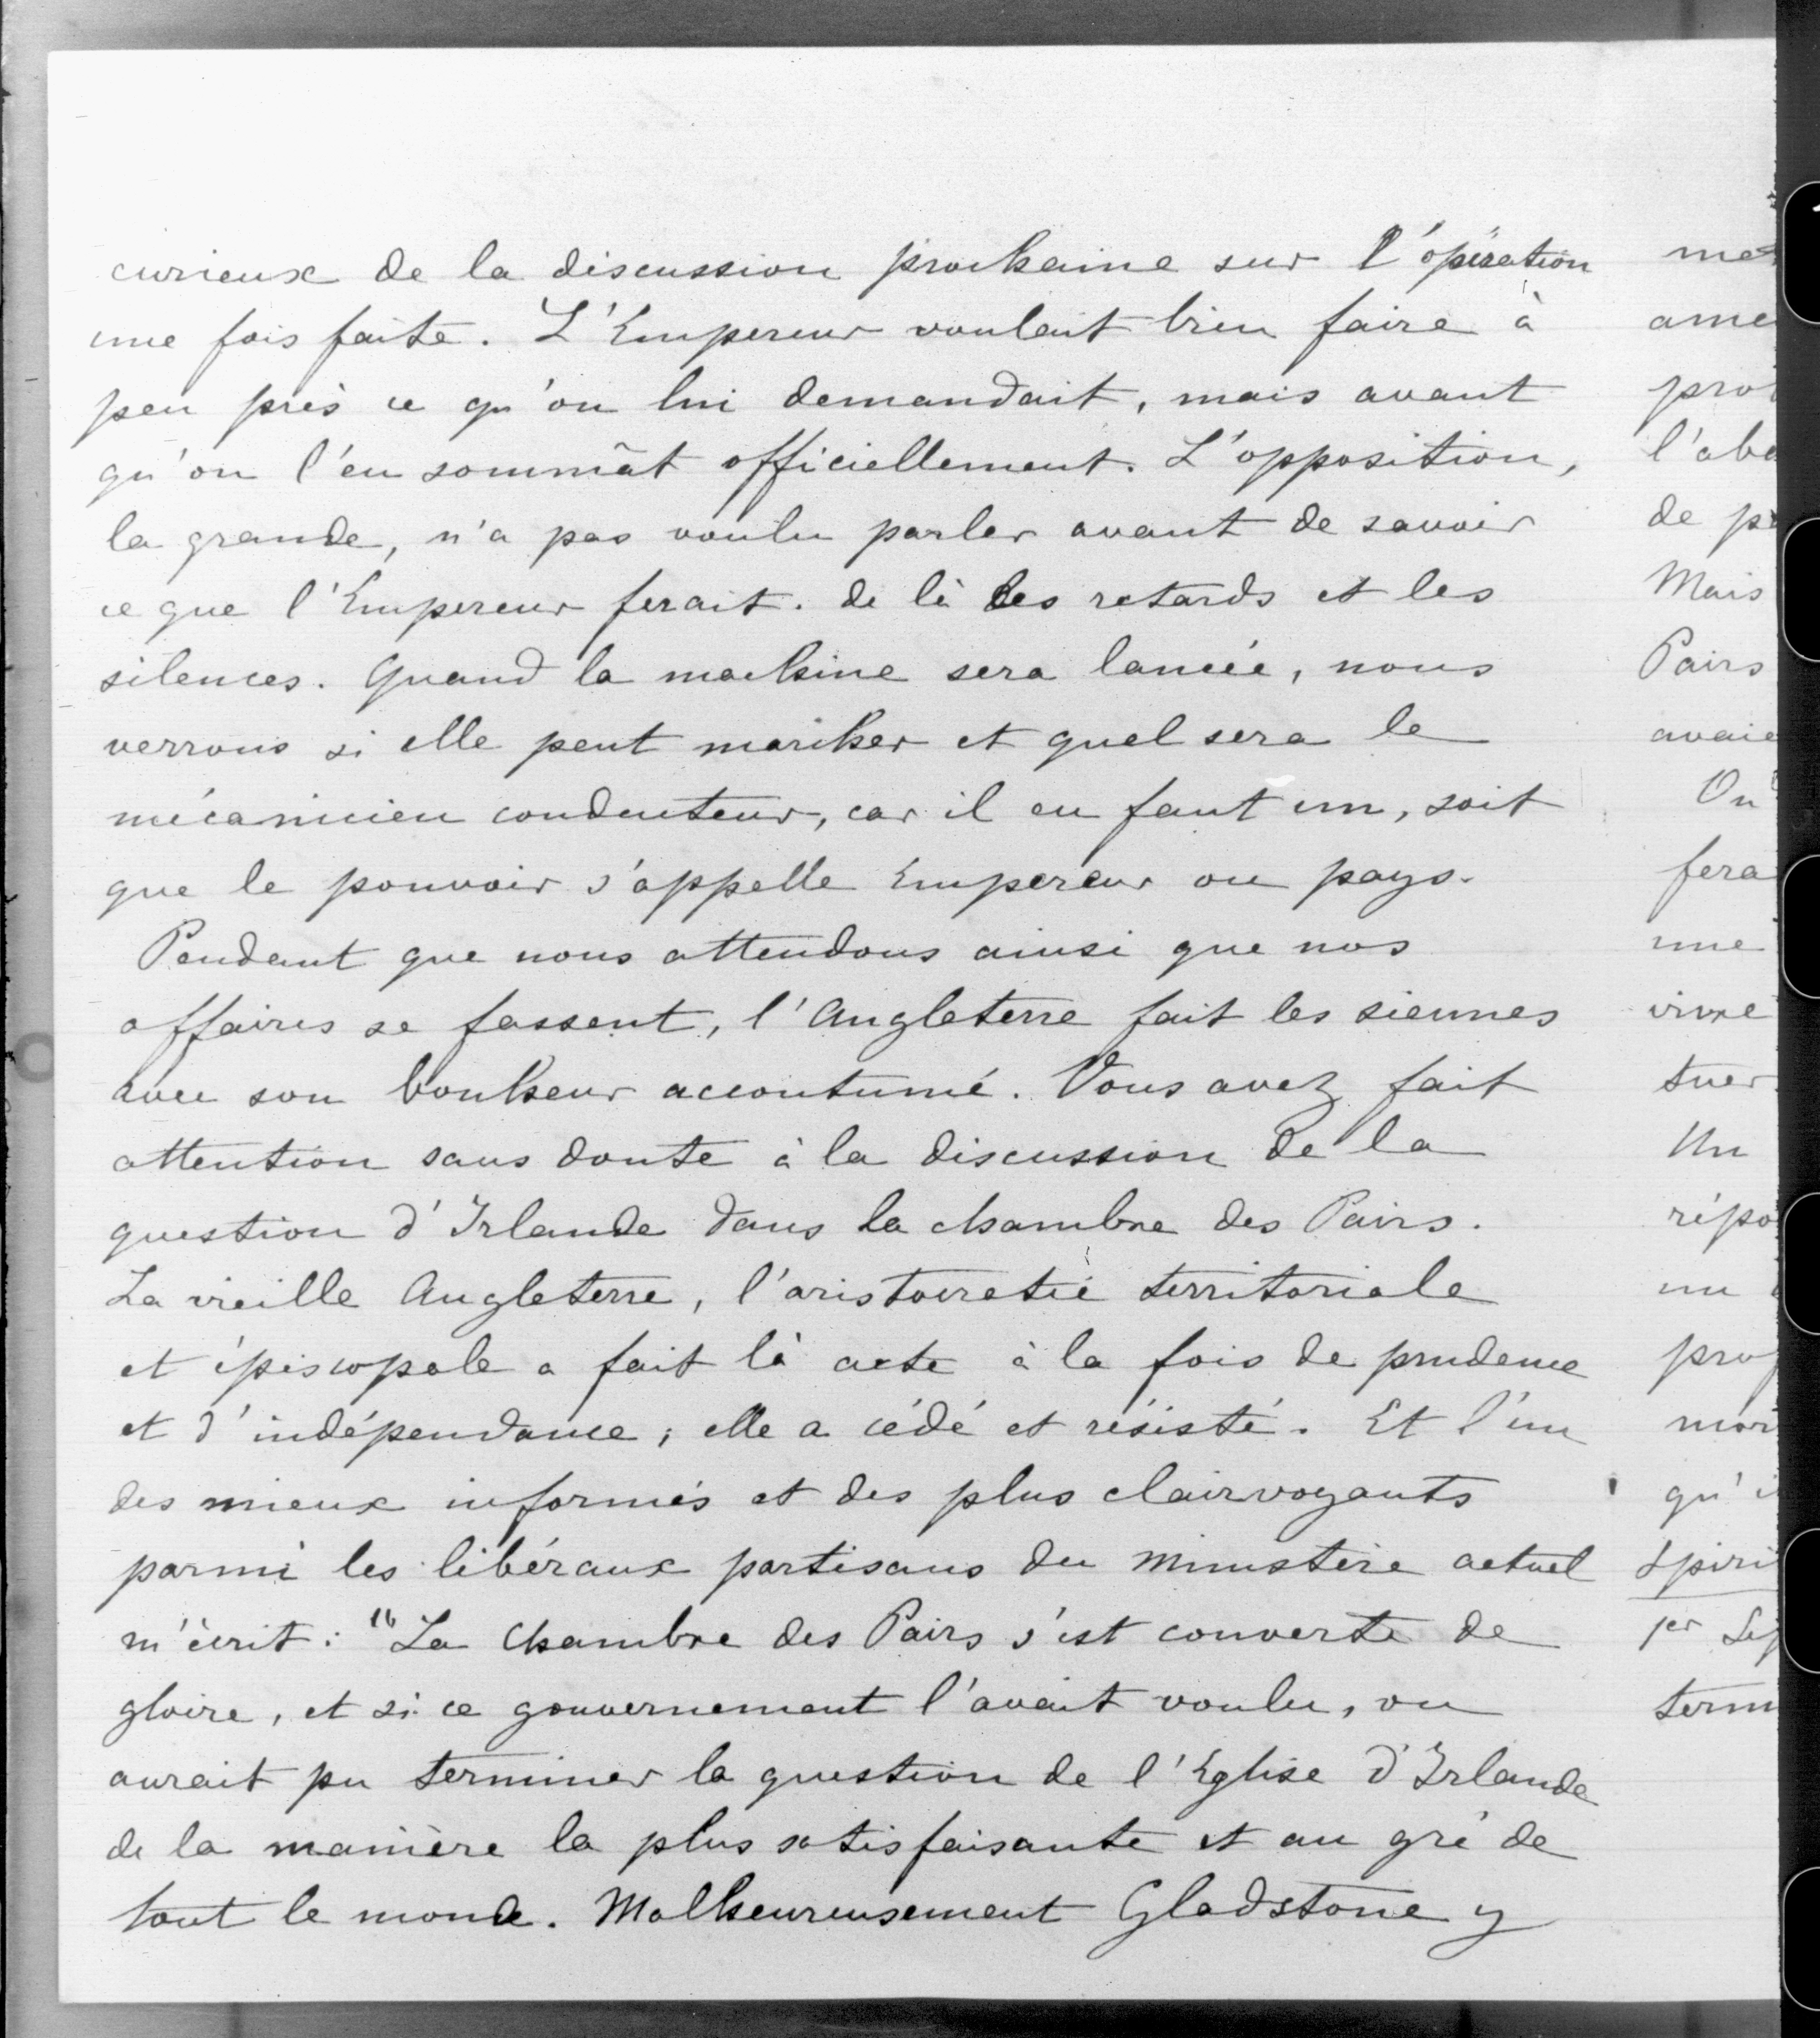 curieux de la discussion prochaine sur l'opération
une fois faite. L'Empereur voulait bien faire à
peu près ce qu'on lui demandait, mais avant
qu'on l'en sommât officiellement. L'opposition,
la grande, n'a pas voulu parler avant de savoir
ce que l'Empereur ferait. de là les retards et les
silences. Quand la machine sera lancée, nous
verrons si elle peut marcher et quel sera le
mécanicien conducteur, car il en faut un, soit
que le pouvoir s'appelle Empereur ou pays.
Pendant que nous attendons ainsi que nos
affaires se fassent, l'Angleterre fait les siennes
avec son bonheur accoutumé. Vous avez fait
attention sans doute à la discussion de la
question d'Irlande dans la chambre des Pairs.
La vieille Angleterre, l'aristocratie territoriale
et épiscopale a fait là acte à la fois de prudence
et d'indépendance ; elle a cédé et résisté. Et l'un
des mieux informés et des plus clairvoyants
parmi les libéraux partisans du ministère actuel
m'écrit : "La Chambre des Pairs s'est couverte de
gloire, et si ce gouvernement l'avait voulu, on
aurait pu terminer la question de l'Eglise d'Irlande
de la manière la plus satisfaisante et au gré de
tout le monde. Malheureusement Gladstone y
ame
pro
l'abo
de p
Mais
Pairs
avaie
On
fera
une
vivre
tuer
Un
répo
un
prop
mor
qu'i
Spiri
1er Sep
term